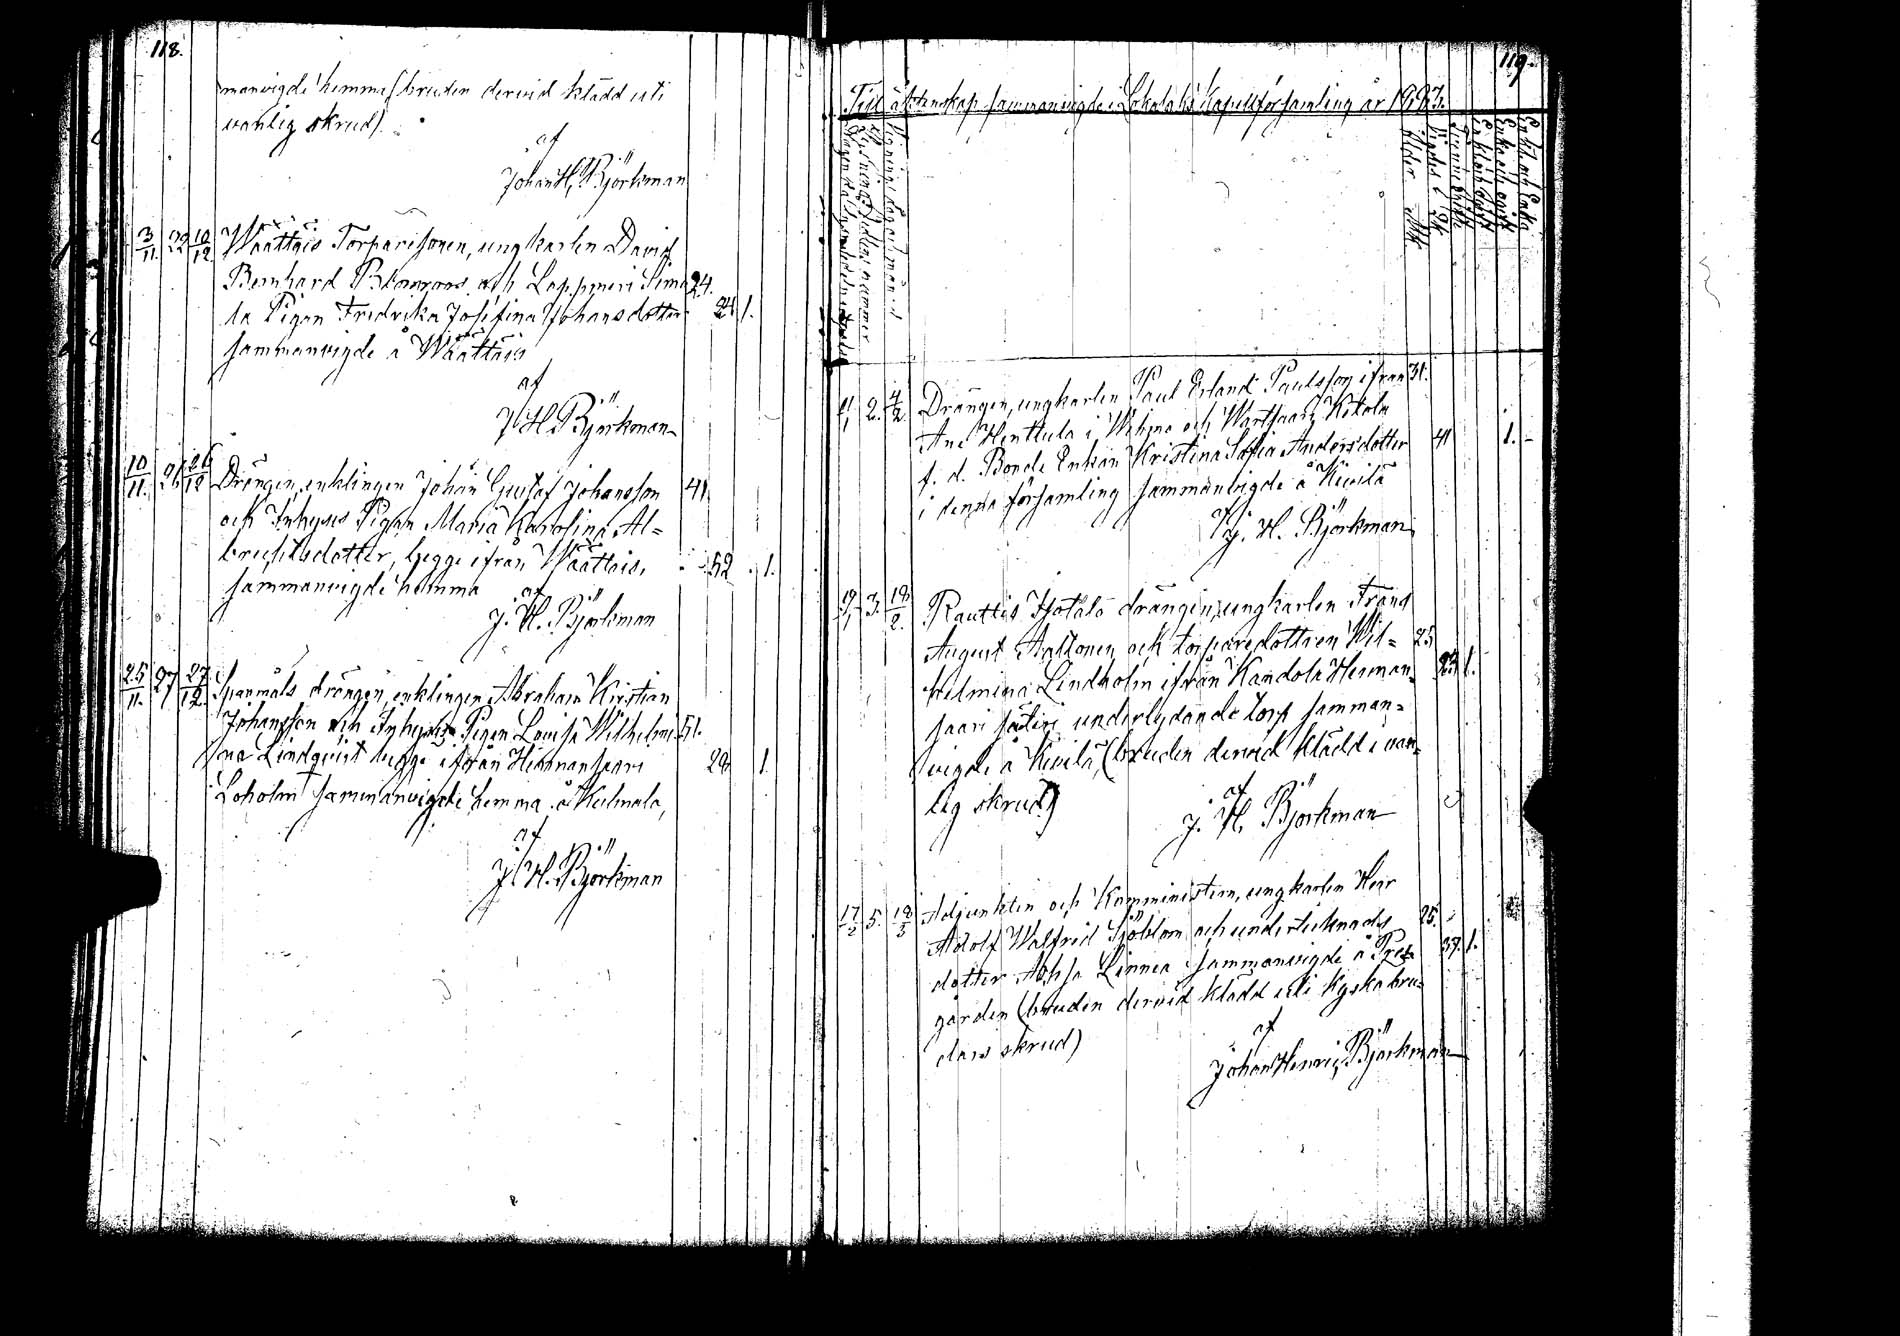 118.
manvigde hemma (bruden dervid klädd uti
vanlig skrud).
af
Johan H. Björkman
3/11. 22 10/12 Wäättäis Torparesonen, ungkarlen David
Bernhard och Lappmeri Simo 24.
la Pigan Fredrika Josefina Johansdotter 24 1.
sammanvigde å Wäättäis
af
J. H. Björkman
10/11. 26 26/12 Drängen, enklingen Johan Gustaf Johansson 41
och Inhyses Pigan Maria Karolina Al=
brechtsdotter, begge ifrån Wäättäis, 52 1.
sammanvigde hemma
af
J. H. Björkman
25/11. 27 27/12. Spanmåls drängen, enklingen Abraham Kristian
Johansson och Inhyses Pigan Lovisa Wilhelmi= 51.
na Lindqvist begge ifrån Hermansaari 28 1
Loholm sammanvigde hemma å Kulmala,
af
J. H. Björkman
119.
Till äktenskap sammanvigde i Lokalaks kapellförsamling år 1883.
Ålder
Enkl. och Enka
4/1 2. 4/2 Drängen, ungkarlen Paul Erland Paulsson ifrån 31.
Ane Henttula i Wehmo och Wartsaari Kitola
f. d. Bonde Enkan Kristina Sofia Andersdotter 41 1.
i denna församling sammanvigde å Kivilä
af
J. H. Björkman
19/1 3. 18/2. Rauttis Isotalo drängen, ungkarlen Frans
August Aaltonen och torparedottren Wil= 25
helmina Lindholm ifrån Kandola Herman= 23 1.
saari säteri underlydande torp samman=
vigde å Kivilä, (bruden dervid klädd i van=
lig skrud)
af
J. H. Björkman
17/2 5. 18/3 Adjunkten och Komministern, ungkarlen Herr
Adolf Walfrid Sjöblom och undertecknads 25.
dotter Linnea sammanvigde å Prest 37. 1.
gården (bruden dervid klädd uti kyska bru=
dars skrud)
af
Johan Henric Björkman